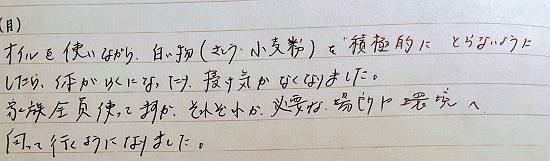 (月)
オイルを使いながら、白い物(さとう・小麦粉)を積極的にとらないように
したら、体がらくになったり、授す気がなくなりました。
家族全員使ってますが、それぞれが、必要な場所や環境へ
向って行くようになりました。